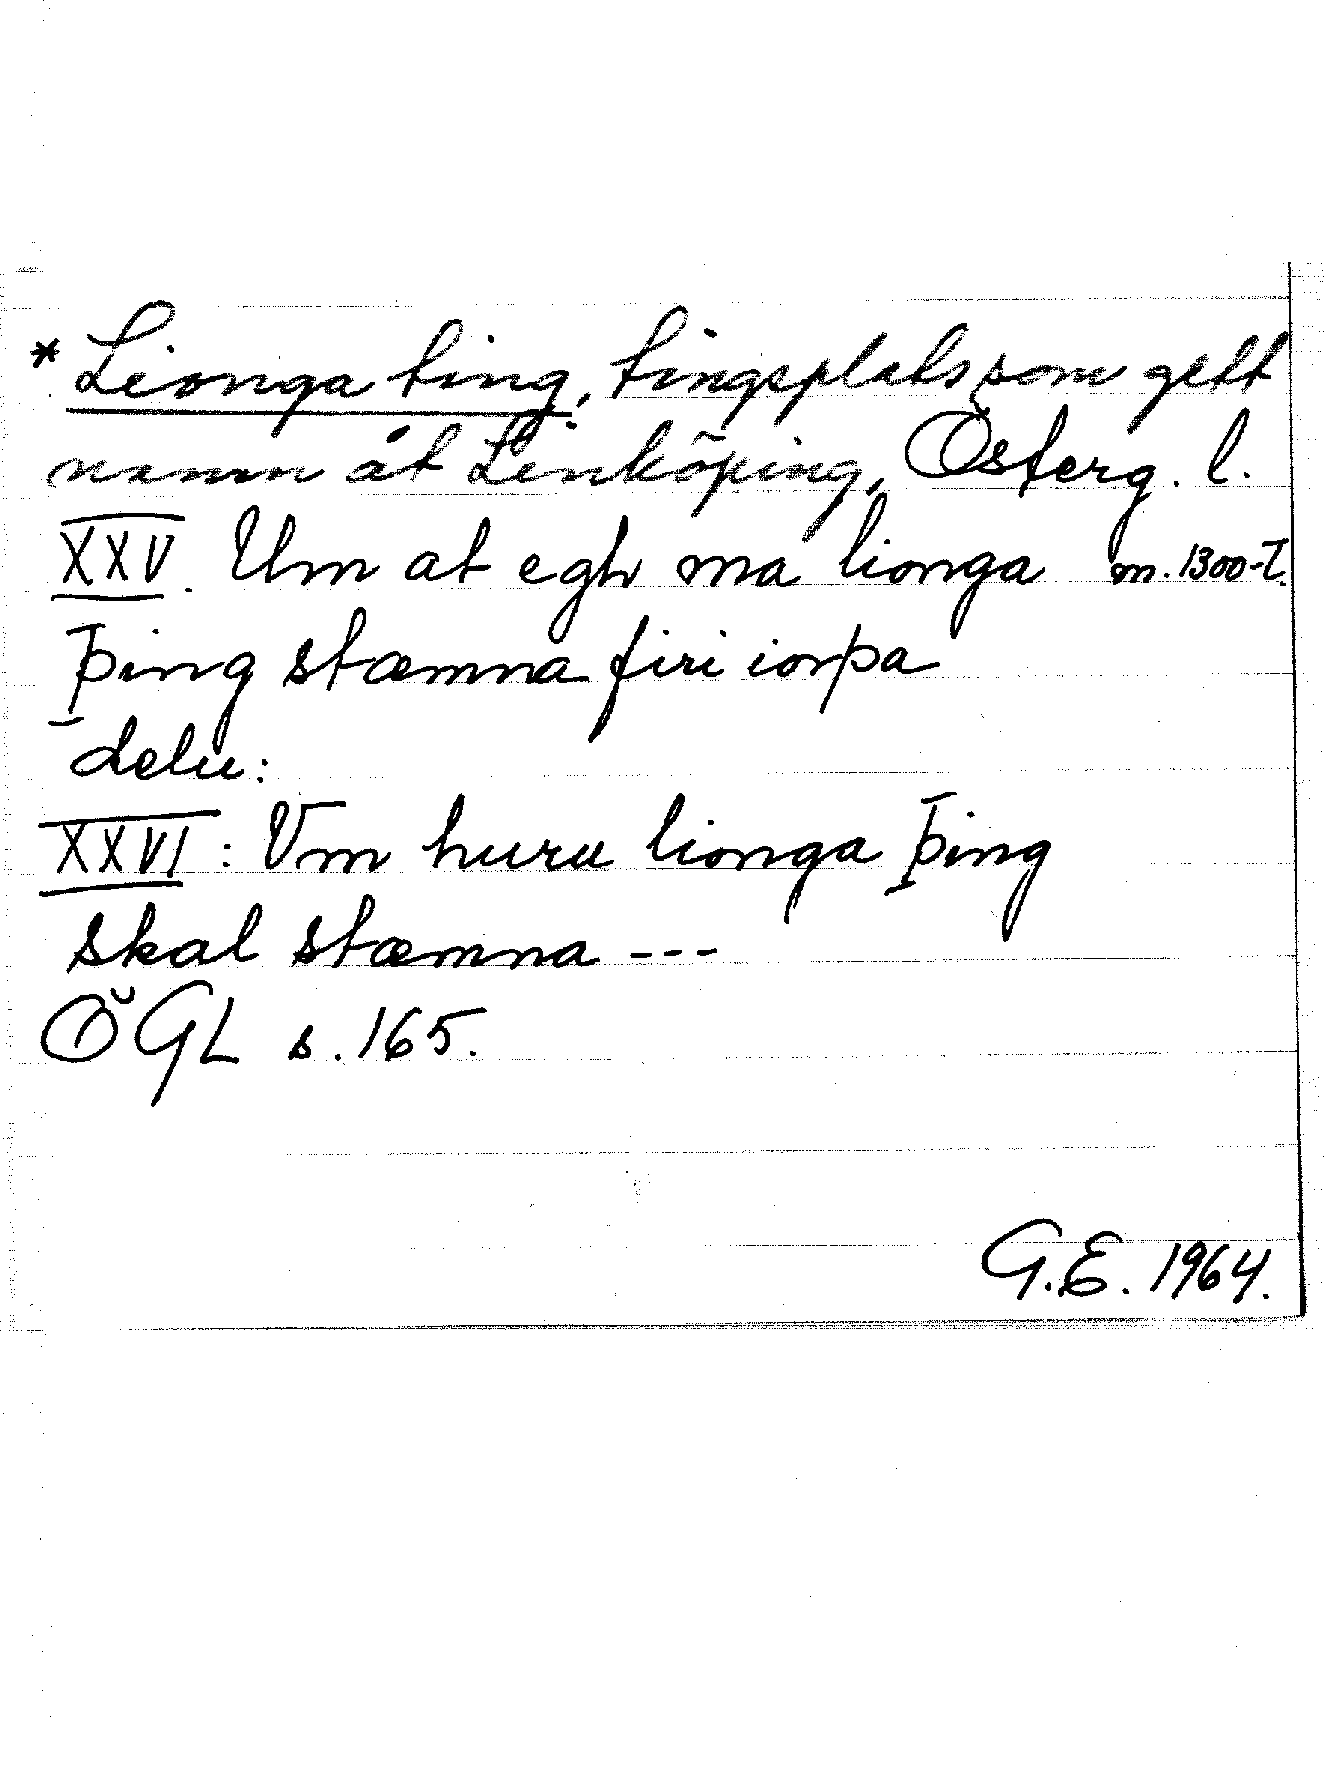 * Lionga ting, tingsplats som gett
namn åt Linköping, Österg. l.
XXV. Um at egh ma lionga m. 1300-T.
þing stæmna firi iorþa
delu:
XXVI: Vm huru lionga þing
skal stæmna ---
ÖGL s. 165.
G.E. 1964.